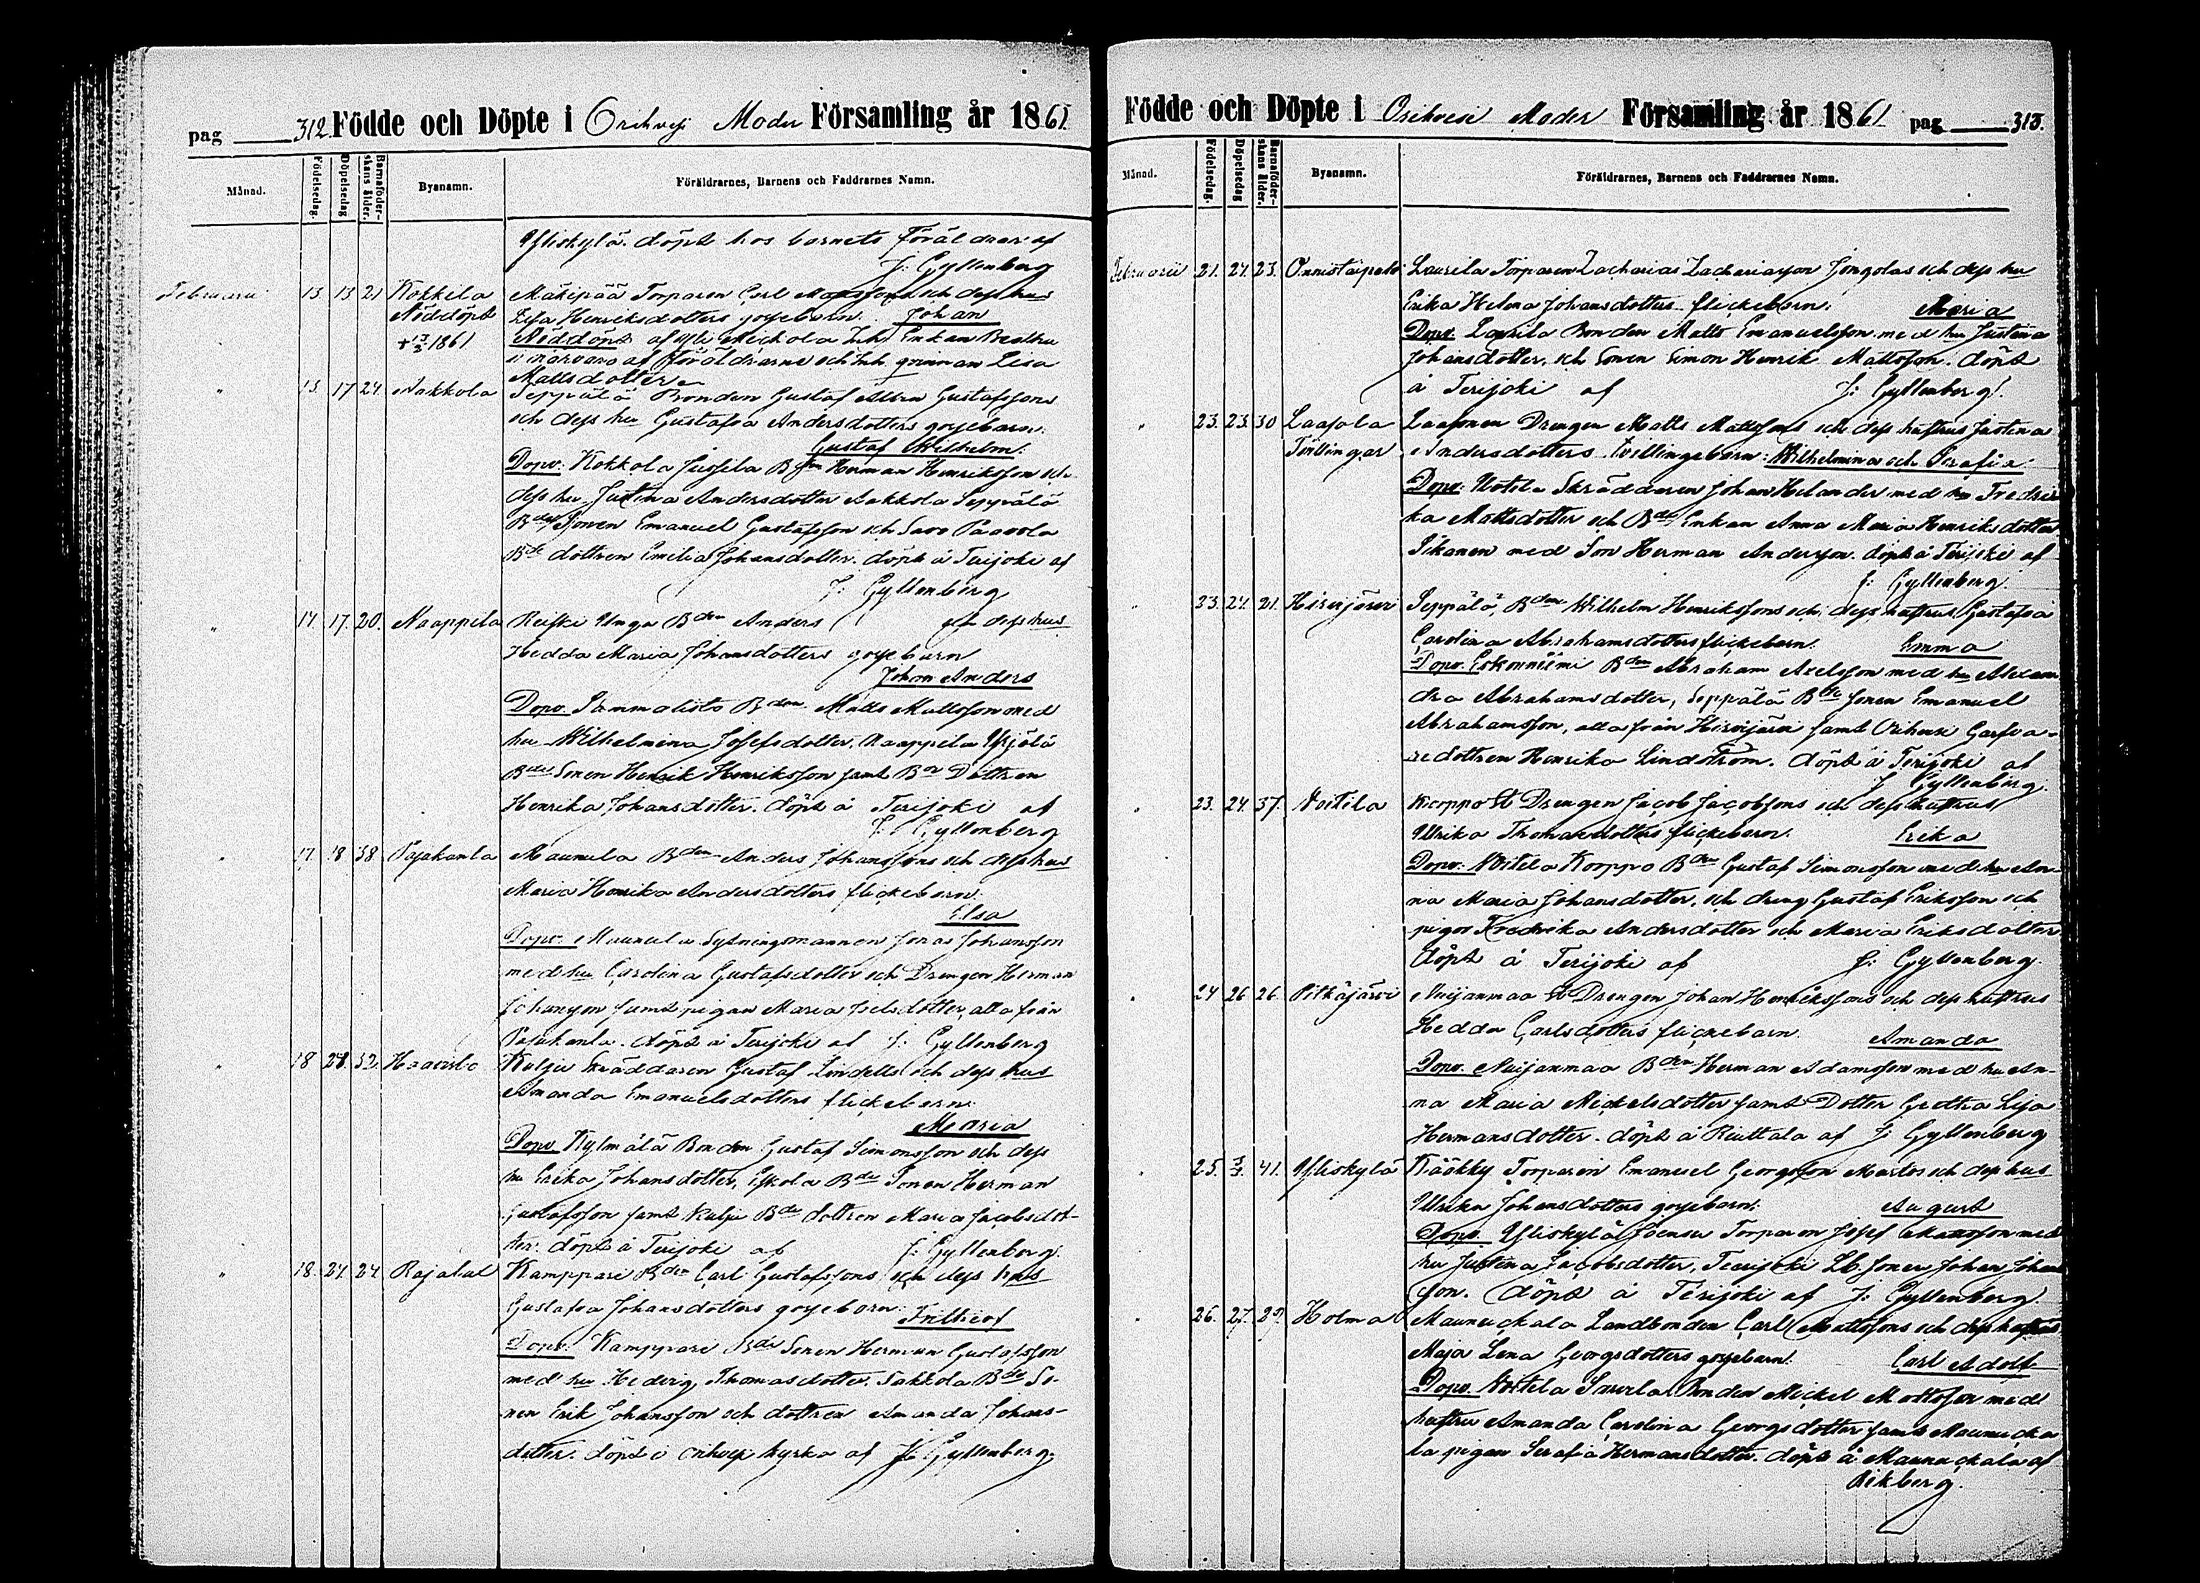 pag 312. Födde och Döpte i Orihvesi Moder Församling år 1861.
Månad. Födelsedag. Döpelsedag Barnaföderskans ålder. Byanamn. Föräldrarnes, Barnens och Faddrarnes Namn.
Yliskylä. döpt hos barnets föräldrar af
J: Gyllenberg
Februarii 13. 13 21 Kokkola Mäkipää Torparen Carl Manssons och dess hus
Nöddöpt Lisa Henriksdotters gossebarn. Johan
1861 Nöddöpt af Yli Mickola Inh. Enkan Beatha
i närvaro af föräldrarne och Inh. qvinnan Lisa
Mattsdotter
" 13. 17 24. Aakkola Seppälä Bonden Gustaf Gustafssons
och dess hu Gustafva Andersdotters gossebarn.
Gustaf Wilhelm.
Dopv: Kokkola Jussila Bden Herman Henriksson och
dess hu Justina Andersdotter Aakkola Seppälä
Bde Sonen Emanuel Gustafsson och Savo Paavola
Bde dottren Emelia Johansdotter. döpt å Terijoki af
J: Gyllenberg
" 14. 17. 20. Naappila Reiski Unga Bden Anders och dess hus
Hedda Maria Johansdotters gossebarn
Johan Anders
Dopv. Sammalisto Bden Matts Mattsson med
hu Wilhelmina Josefsdotter, Naappila Yrjölä
Bde Sonen Henrik Henriksson samt Bde Dottren
Henrika Johansdotter. döpt å Terijoki af
J: Gyllenberg
" 17. 18 38. Pajukanta Maunula Bden Anders Johanssons och dess hus
Maria Henrika Andersdotters flickebarn.
Elsa
Dopv. Maunula Sytningsmannen Jonas Johansson
med hu Carolina Gustafsdotter och Drengen Herman
Johansson samt pigan Maria Joelsdotter, alla från
Pajukanta. döpt å Terijoki af J: Gyllenberg
" 18 24. 32. Haavisto Kulju Skräddaren Gustaf Lindells och dess hus
Amanda Emanuelsdotters flickebarn.
Maria
Dopv. Kylmälä Bonden Gustaf Simonsson och dess
hu Erika Johansdotter, Eskola Bde Sonen Herman
Gustafsson samt Kulju Bde dottren Maria Jacobsdot-
ter. döpt å Terijoki af J: Gyllenberg.
" 18. 24. 24. Rajalal Kamppari Bden Carl Gustafssons och dess hus
Gustafva Johansdotters gossebarn.
Frithiof
Dopv. Kamppari Bde Sonen Herman Gustafsson
med hu Hedvig Thomasdotter. Sakkola Bde So-
nen Erik Johansson och dottren Amanda Johans-
dotter. döpt i Orihvesi kyrka af J: Gyllenberg.
Födde och Döpte i Orihvesi Moder Församling år 1861 pag 313.
Månad. Födelsedag. Döpelsedag Barnaföderskans ålder. Byanamn. Föräldrarnes, Barnens och Faddrarnes Namn.
Februarii 21. 24. 23. Onnistaipale Laurila Torparen Zacharias Zachariasson och dess hu
Erika Helena Johansdotters flickebarn. Maria
Dopv. Laurila Bonden Matts Emanuelsson med hu Justina
Johansdotter, och Sonen Simon Henrik Mattsson. döpt
å Terijoki af J: Gyllenberg.
" 23. 23. 30 Laasola Laasonen Drengen Matts Mattssons och dess hustrus Justina
Tvillingar Andersdotters tvillingebarn: Wilhelmina och Serafia
Dopv. Voitila Skräddaren Johan Helander med hu Fredri
ka Mattsdotter och Bde Enkan Anna Maria Henriksdotter
Pikanen med Son Herman Andersson. döpt å Terijoki af
J: Gyllenberg.
23. 24. 21. Hirvijärvi Seppälä Bden Wilhelm Henrikssons och dess hustrus Gustafva
Carolina Abrahamsdotters flickebarn. Emma
Dopv. Eskonniemi Bden Abraham Axelsson med hu Alexan
dra Abrahamsdotter, Seppälä Bde Sonen Emanuel
Abrahamsson, alla från Hirvijärvi samt Orihvesi Garfva-
redottren Henrika Lindström. döpt å Terijoki af
J. Gyllenberg.
23. 24. 37. Voitila Korppo St Drengen Jacob Jacobssons och dess hustrus
Ulrika Thomasdotters flickebarn. Erika
Dopv. Voitila Korppo Bden Gustaf Simonsson med hu An-
na Maria Johansdotter, och dreng Gustaf Eriksson och
pigor Fredrika Andersdotter och Maria Eriksdotter
döpt å Terijoki af J: Gyllenberg.
24 26 26. Pitkäjärvi Nuijanmaa St Drengen Johan Henrikssons och dess hustrus
Hedda Carlsdotters flickebarn. Amanda
Dopv. Nuijanmaa Bden Herman Adamsson med hu An-
na Maria Mickelsdotter samt Dotter Gretha Lisa
Hermansdotter. döpt å Riuttala af J: Gyllenberg
25. 3/3. 41. Yliskylä Kääkky Torparen Emanuel Georgsson och dess hus
Ulrika Johansdotters gossebarn. August
Dopv. Yliskylä Torparen Josef Mansson med
hu Justina Jacobsdotter, Terijoki Lb. sonen Johan Johans
son. döpt å Terijoki af J: Gyllenberg.
26. 27. 29. Holma Maunuckala Landbonden Carl Mattssons och dess hustrus
Maja Lena Georgsdotters gossebarn. Carl Adolf
Dopv. Voitila Suurla Bonden Mickel Mattsson med
hustru Amanda Carolina Georgsdotter samt Maunucka
la pigan Serafia Hermansdotter. döpt å Maunuckala af
Rikberg.